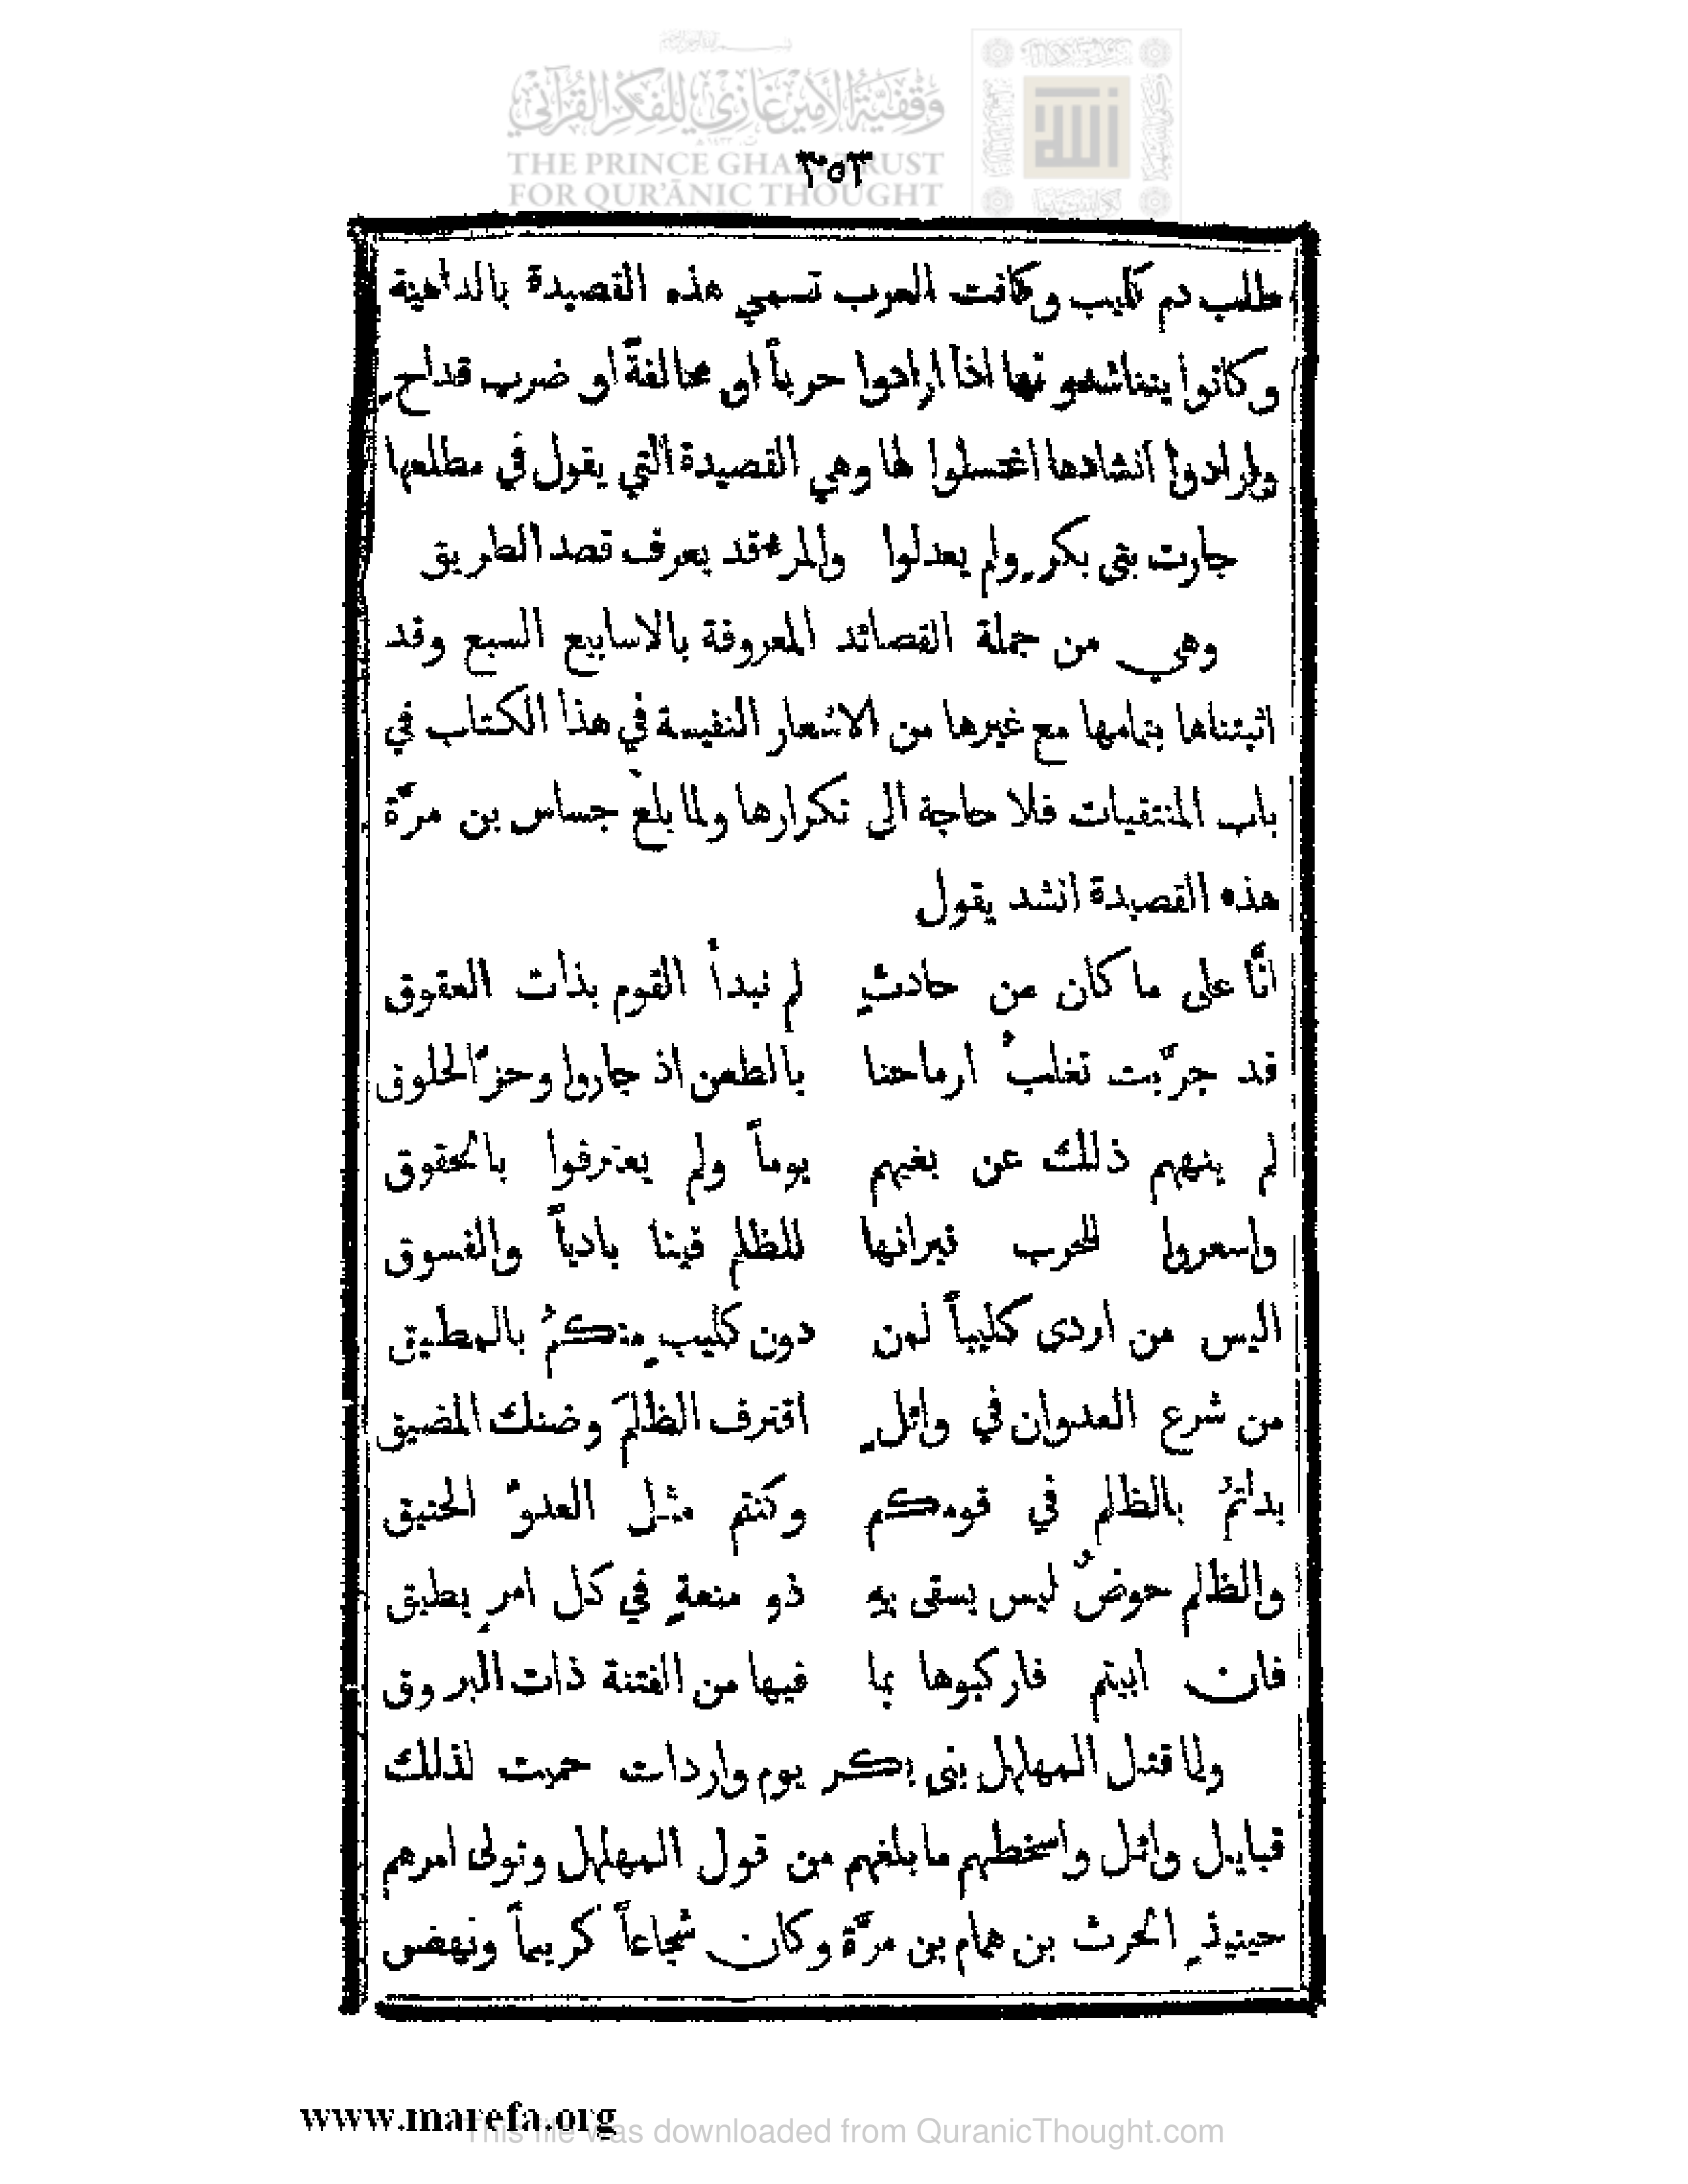 وقفية الأمير غازي للفكر القرآني
THE PRINCE GHAZI TRUST
FOR QUR'ĀNIC THOUGHT
٣٥٣
طلب دم كليب وكانت العرب تسمي هذه القصيدة بالداهية
وكانوا يتناشدونها اذا ارادوا حرباً او محالفةً او ضرب قداحٍ
وارادوا انشادها اغتسلوا لها وهي القصيدة التي يقول في مطلعها
جارت بني بكرٍ ولم يعدلوا والمرء قد يعرف قصد الطريق
وهي من جملة القصائد المعروفة بالاسابيع السبع وقد
اثبتناها بتمامها مع غيرها من الاشعار النفيسة في هذا الكتاب في
باب المنتقيات فلا حاجة الى تكرارها ولما بلغ جساس بن مرَّة
هذه القصيدة انشد يقول
انَّا على ما كان من حادثٍ لم نبدأ القوم بذات العقوق
قد جرَّبت تغلبُ ارماحنا بالطعن اذ جاروا وحزّ الحلوق
لم ينههم ذلك عن بغيهم يوماً ولم يعترفوا بالحقوق
واسعروا للحرب نيرانها للظلم فينا بادياً والفسوق
اليس من اردى كليباً لمن دون كليبٍ منكمُ بالمطيق
من شرع العدوان في وائلٍ اقترف الظلمَ وضنك المضيق
بدأتمُ بالظلم في قومكم وكنتم مثل العدوّ الحنيق
والظلم حوضٌ ليس يسقى بهِ ذو منعةٍ في كل امرٍ يطيق
فان ابيتم فاركبوها بما فيها من الفتنة ذات البروق
ولما قتل المهلهل بني بكر يوم واردات حميت لذلك
قبايل وائل واسخطهم ما بلغهم من قول المهلهل وتولى امرهم
حينيذٍ الحرث بن همام بن مرَّة وكان شجاعاً كريماً ونهض
www.marefa.org
This file was downloaded from QuranicThought.com